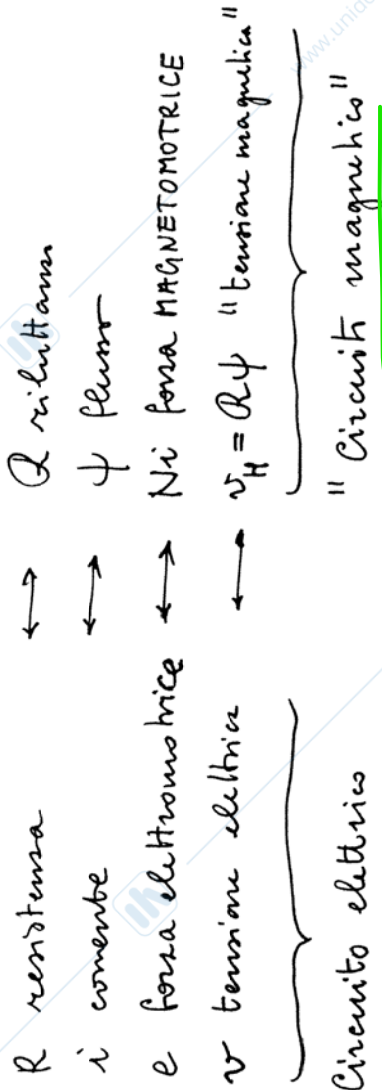 R resistenza ↔ ℛ riluttanza
i corrente ↔ ψ flusso
e forza elettromotrice ↔ Ni forza MAGNETOMOTRICE
v tensione elettrica ↔ v_H = ℛψ "tensione magnetica"
Circuito elettrico "Circuiti magnetico"